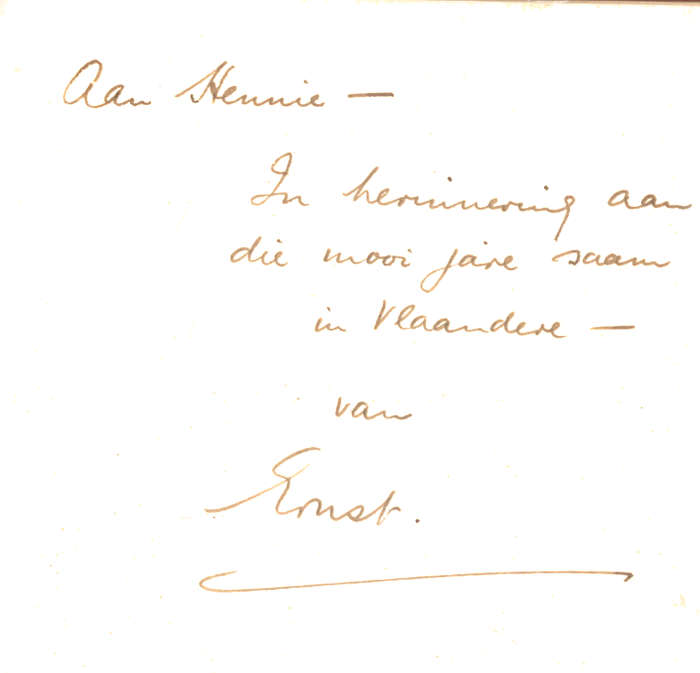 Aan Hennie —
In herinnering aan
die mooi jare saam
in Vlaandere —
van
Ernst.